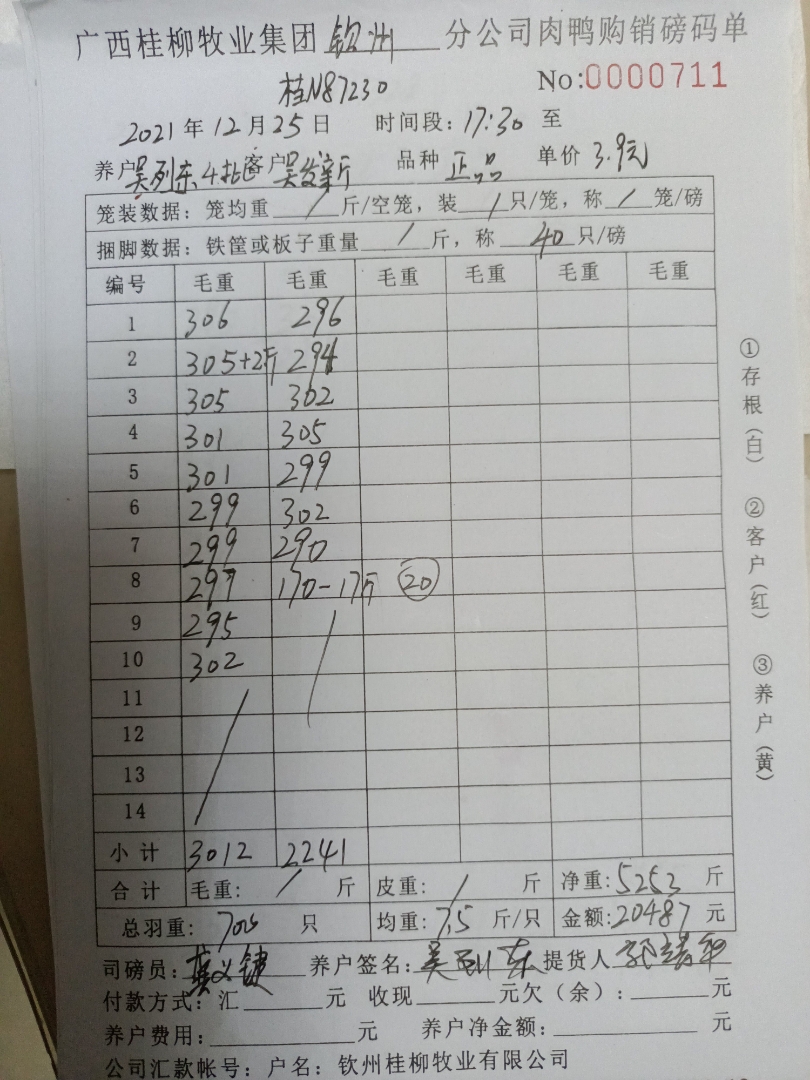 广西桂柳牧业集团 钦州 分公司肉鸭购销磅码单
桂N87230 No:0000711
2021年12月25日 时间段:17:30至
养户吴列东4批 客户吴发新 品种正品 单价3.9元
笼装数据:笼均重/斤/空笼,装/只/笼,称/笼/磅
捆脚数据:铁筐或板子重量/斤,称40只/磅
编号 毛重 毛重 毛重 毛重 毛重 毛重
1 306 296
2 305+2斤 294
3 305 302
4 301 305
5 301 299
6 299 302
7 299 290
8 297 170-17斤 20
9 295
10 302
11
12
13
14
小计 3012 2241
合计 毛重:/斤 皮重:/斤 净重:5253斤
总羽重:700只 均重:7.5斤/只 金额:20487元
司磅员: 养户签名:吴列东 提货人
付款方式:汇 元 收现 元欠(余): 元
养户费用: 元 养户净金额: 元
公司汇款帐号:户名:钦州桂柳牧业有限公司
①存根(白) ②客户(红) ③养户(黄)